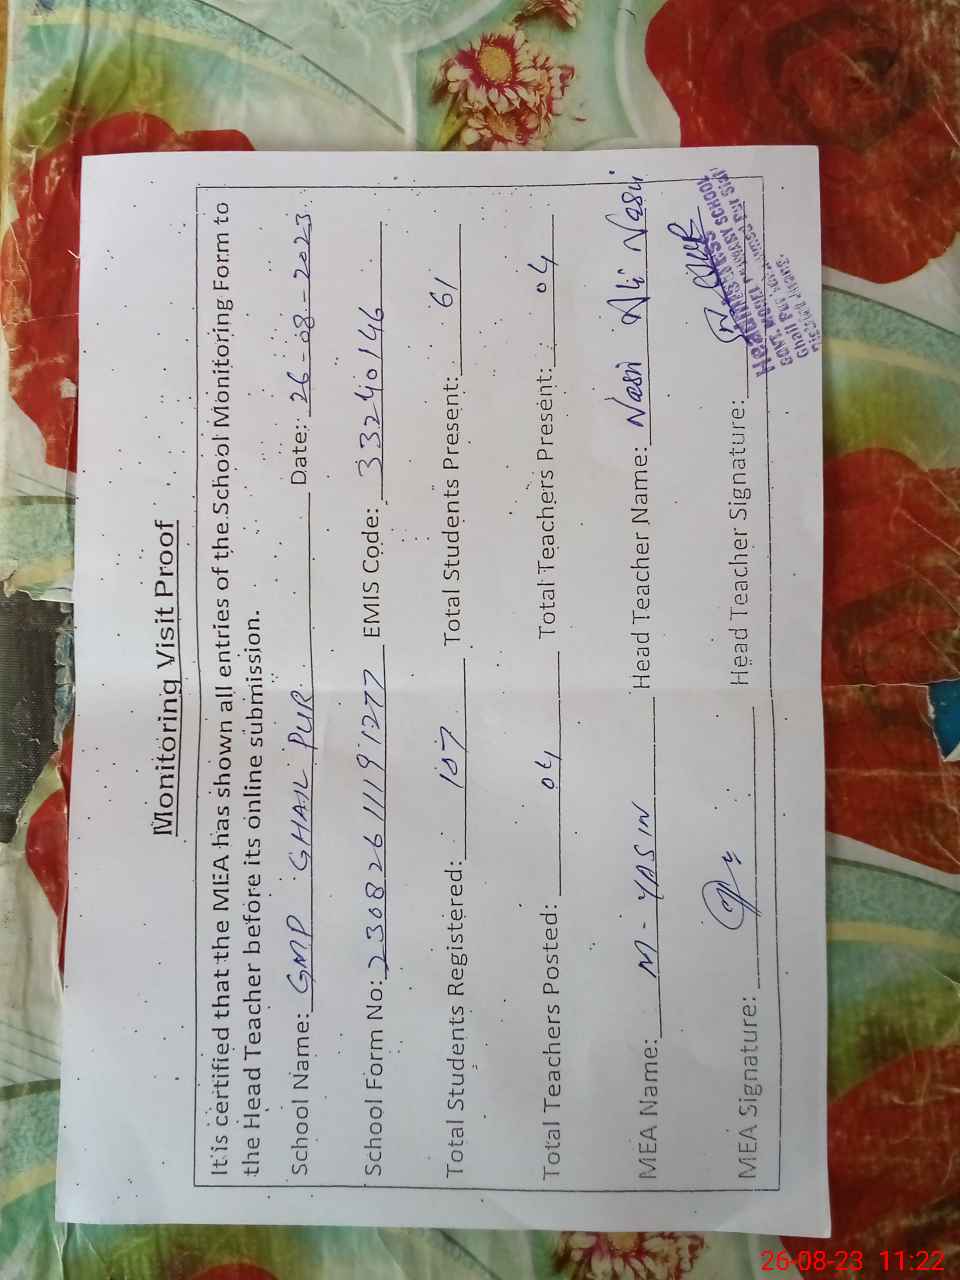 Monitoring Visit Proof
It is certified that the MEA has shown all entries of the School Monitoring Form to
the Head Teacher before its online submission.
School Name: GMP GHAIL PUR Date: 26-08-2023
School Form No: 230826111191277 EMIS Code: 33240146
Total Students Registered: 107 Total Students Present: 61
Total Teachers Posted: 04 Total Teachers Present: 04
MEA Name: M-YASIN Head Teacher Name: Nasir Ali Nasir
MEA Signature: Head Teacher Signature:
Headmistress
GOVT. MODEL PRIMARY SCHOOL
Ghail Pur
26-08-23 11:22